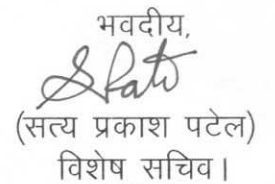 भवदीय,
(सत्य प्रकाश पटेल)
विशेष सचिव।